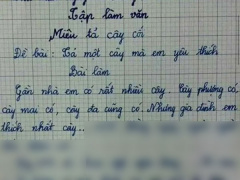 Tập làm văn
Miêu tả cây cối
Đề bài: Tả một cây mà em yêu thích
Bài làm
Gần nhà em có rất nhiều cây. Cây phượng có,
cây mai có, cây đa cũng có. Nhưng gia đình em
thích nhất cây...